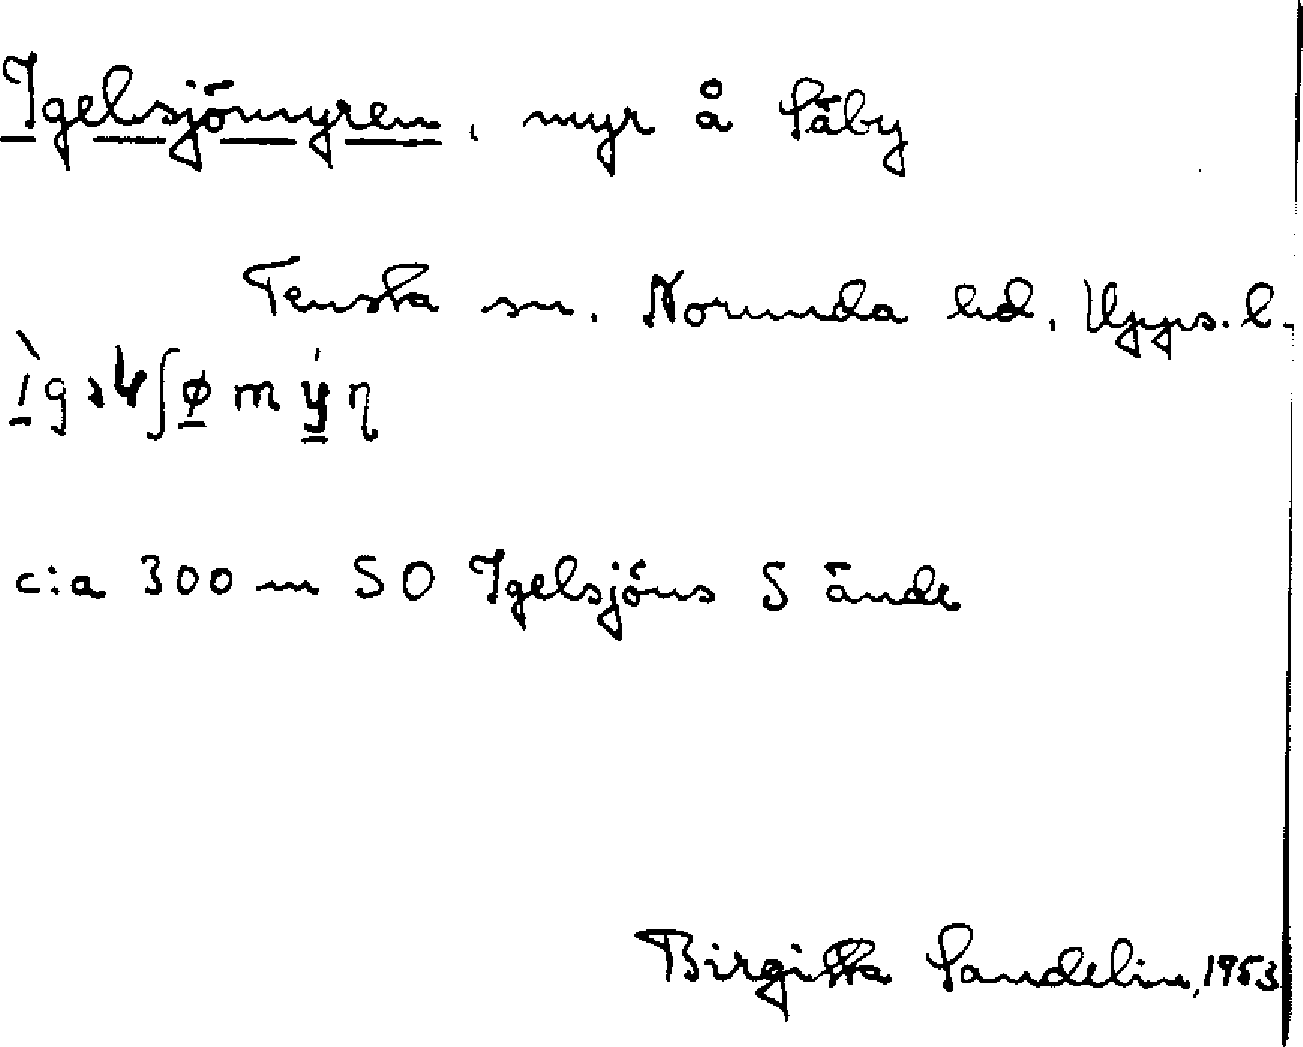 Igelsjömyren, myr å Säby
Tensta sn. Norunda hd. Upps. l.
c:a 300 m SO Igelsjöns S ände
Birgitta Sandelin, 1953